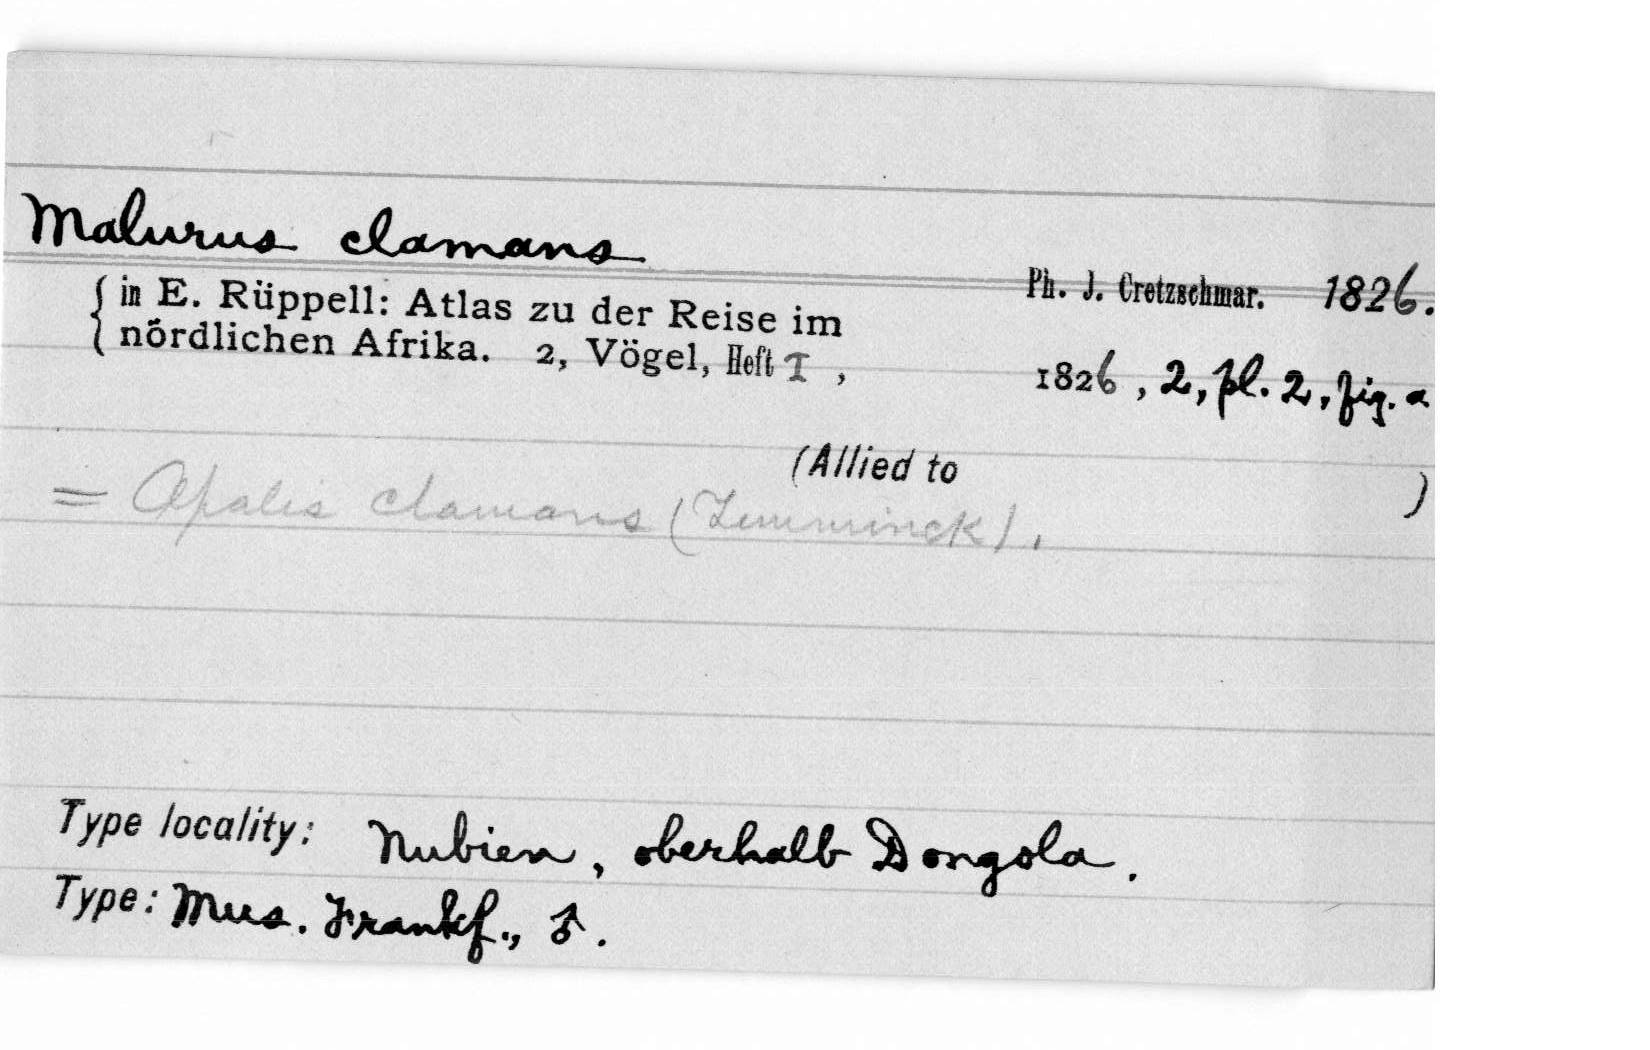 Malurus clamans
Ph. J. Cretzschmar. 1826.
{ in E. Rüppell: Atlas zu der Reise im
nördlichen Afrika. 2, Vögel, Heft I, 1826, 2, pl. 2, fig. a
(Allied to )
= Apalis clamans (Temminck).
Type locality: Nubien, oberhalb Dongola.
Type: Mus. Frankf., ♂.